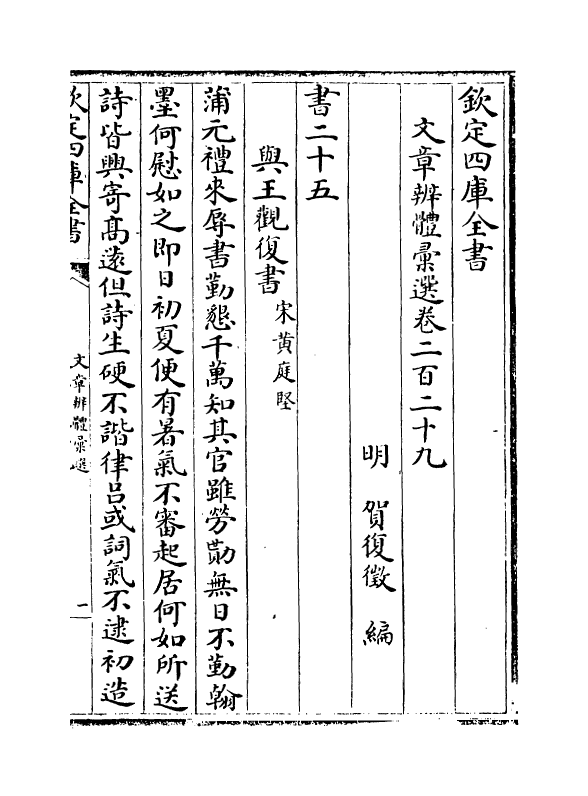 欽定四庫全書
文章辨體彙選卷二百二十九
明 賀復徵 編
書二十五
與王觀復書 宋黄庭堅
蒲元禮來辱書勤懇千萬知其官雖勞勩無日不勤翰
墨何慰如之即日初夏便有暑氣不審起居何如所送
詩皆興寄髙逺但詩生硬不諧律吕或詞氣不逮初造
欽定四庫全書
文章辨體彙選
一